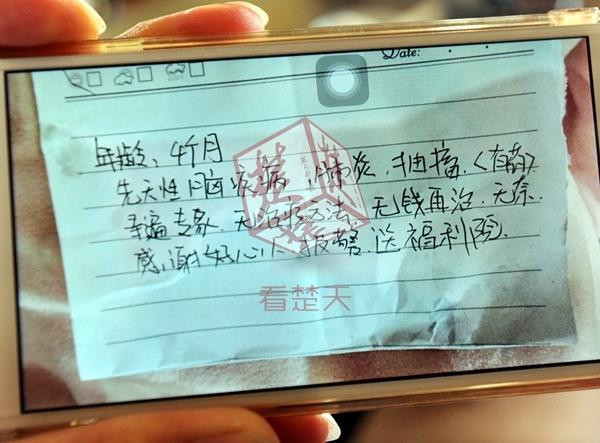 Date:
年龄、4个月
先天性脑疾病 肺炎、抽搐、〈有药〉
寻遍专家、无治疗方法、无钱再治、无奈、
感谢好心人 报警、送福利院、
看楚天